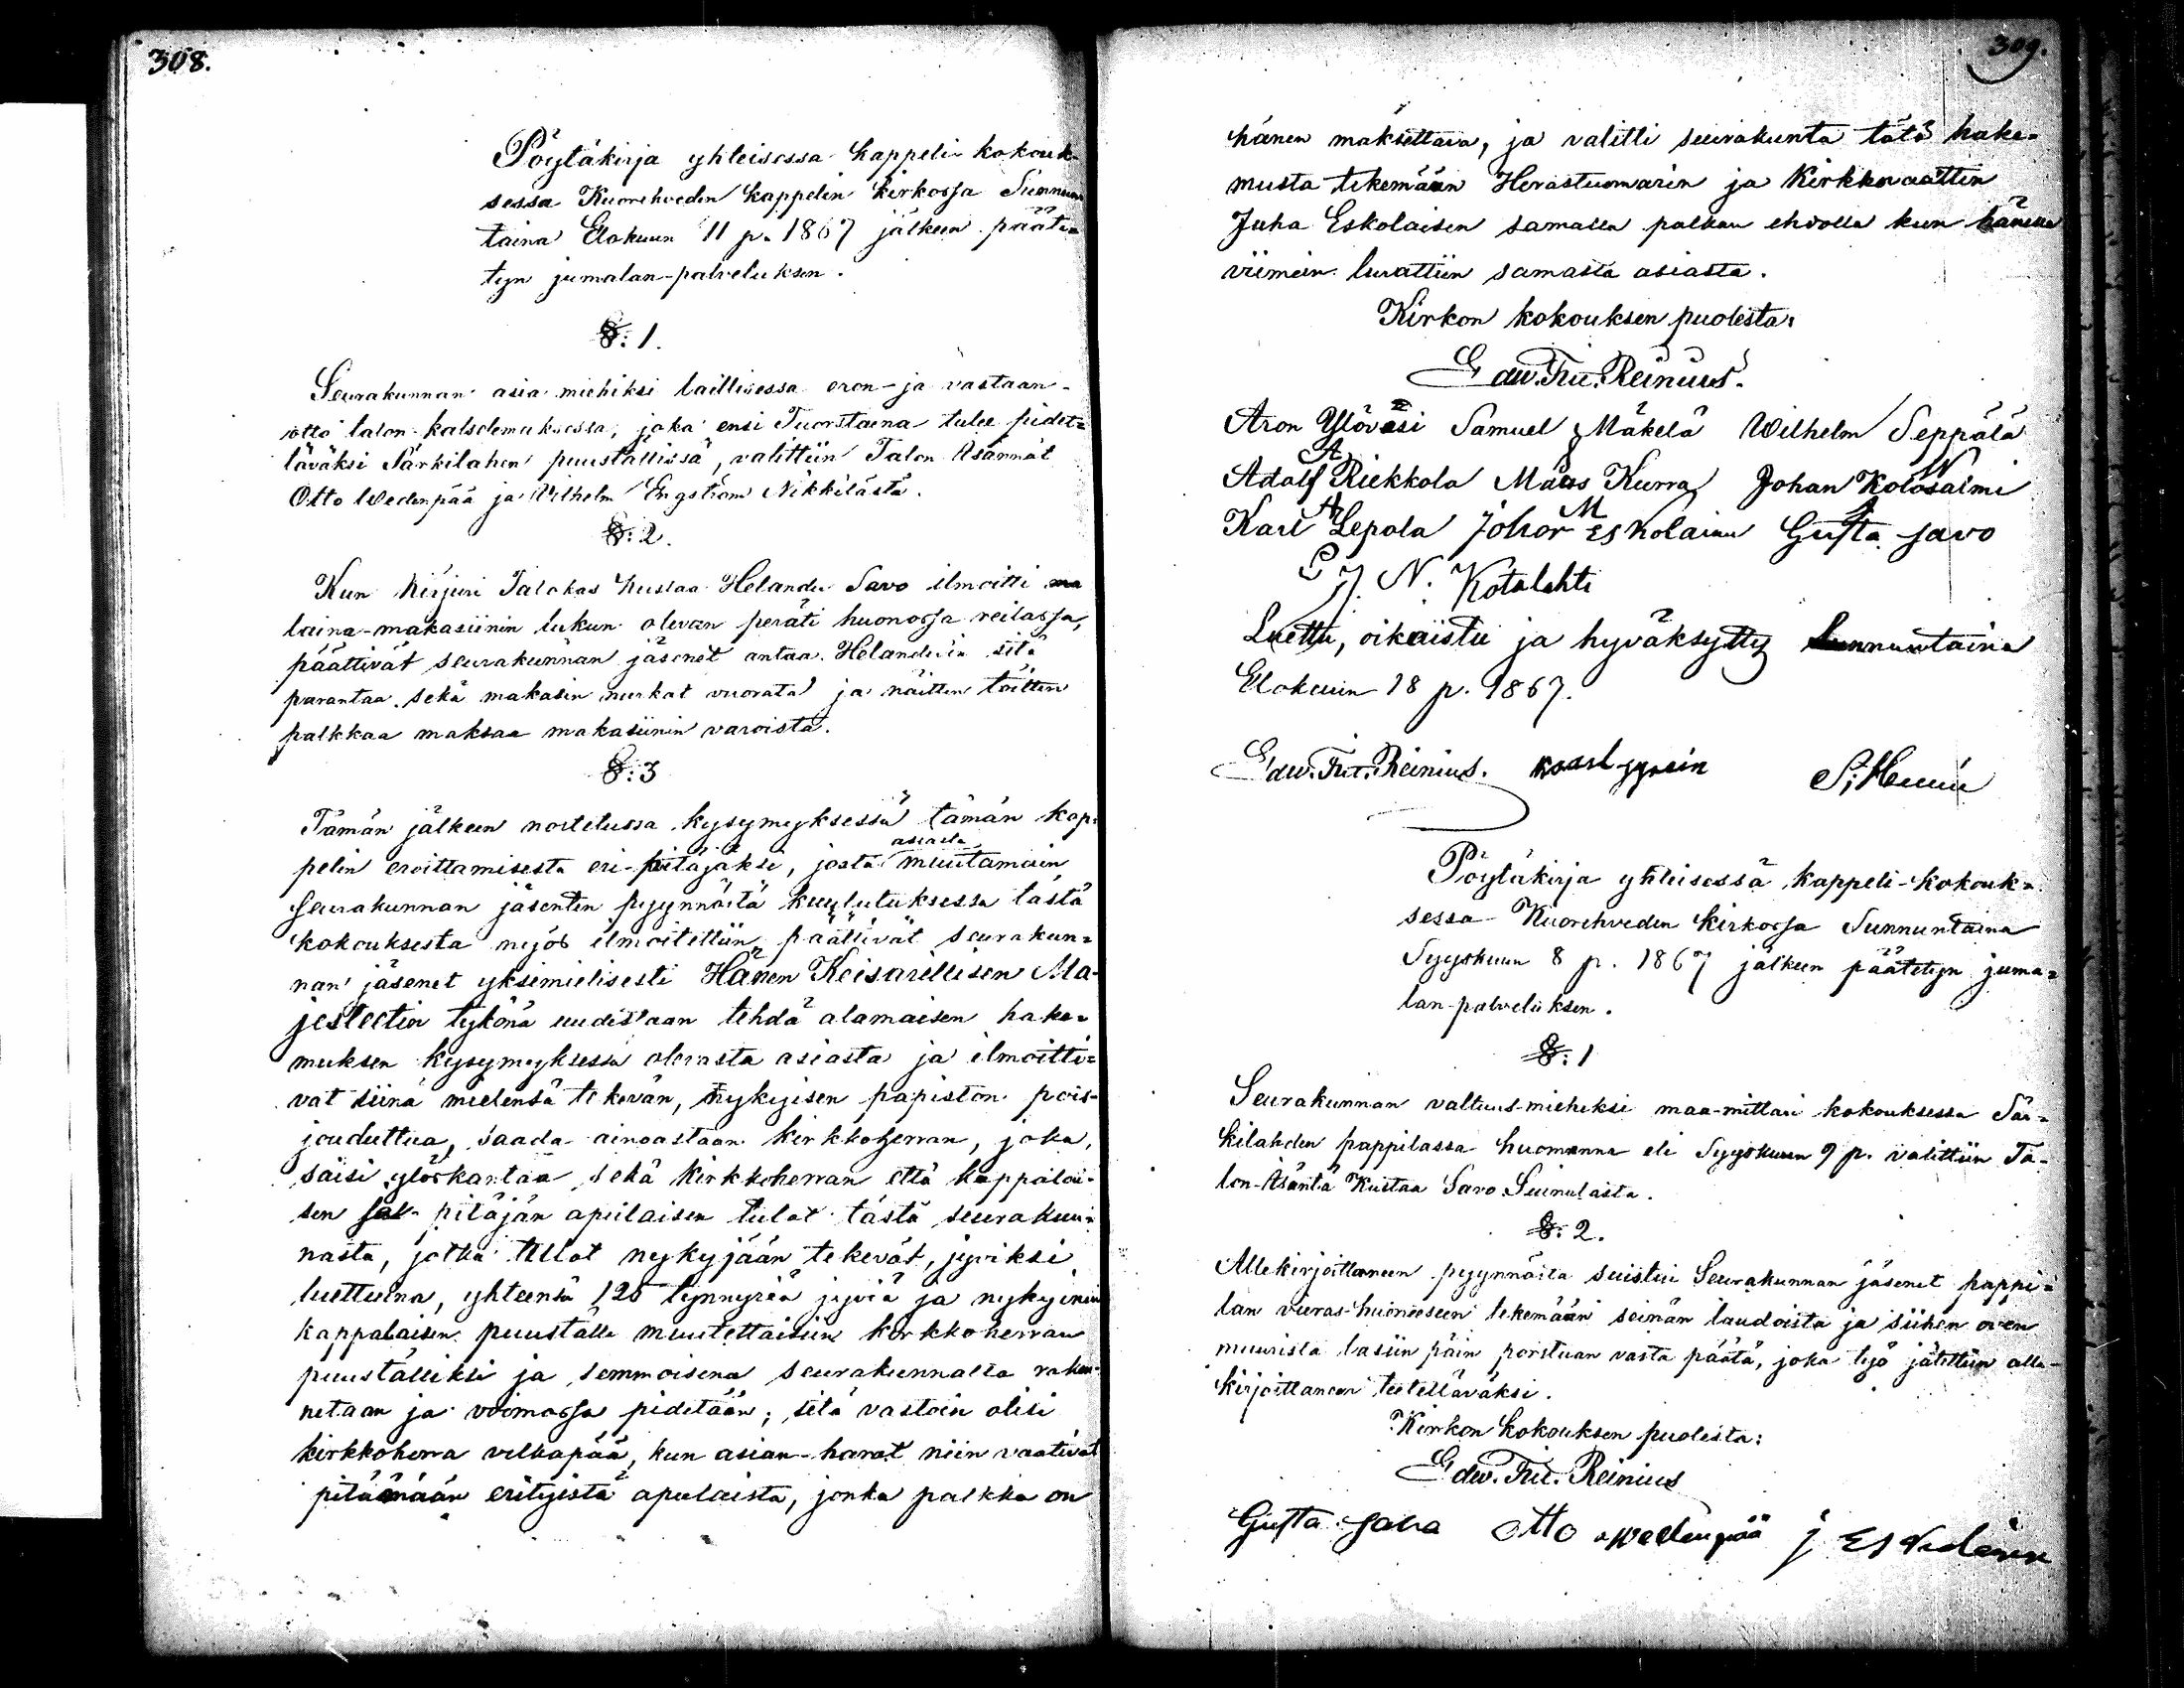 308.
Pöytäkirja yhteisessa kappelin kokouk-
sessa Kuorehveden kappelin kirkossa Sunnun
taina Elokuun 11 p. 1867 jälkeen päätä=
tyn jumalan-palveluksen.
§: 1.
Seurakunnan asia miehiksi laillisessa eron- ja vastaan-
otto talon katselemuksessa, joka ensi Tuorstaina tulee pidet=
täväksi Särkilahen puustallissa, valittiin Talon Isännät
Otto Wedenpää ja Wilhelm Engström Nikkilästä.
§: 2.
Kun kirjuri Talokas Kustaa Helander Savo ilmoitti
laina-makasiinin lukun olevan peräti huonossa reilassa,
päättivät seurakunnan jäsenet antaa Helanderin sitä
parantaa sekä makasin nurkat vuorata ja näitten töitten
palkkaa maksaa makasiinin varoista.
§: 3
Tämän jälkeen nostetussa kysymyksessä tämän kap=
pelin eroittamisesta eri-pitäjäksi, josta asiasta muutamain
Seurakunnan jäsenten pyynnöstä kuulutuksessa tästä
kokouksesta myös ilmoitettiin, päättivät seurakun=
nan jäsenet yksimielisesti Hänen Keisarillisen Ma-
jesteetin tykönä uudistaan tehdä alamaisen hake=
muksen kysymyksessä olevasta asiasta ja ilmoitti=
vat siinä mielensä tekevän, nykyisen papiston pois-
jouduttua, saada ainoastaan kirkkoherran, joka,
saisi ylöskantaa sekä kirkkoherran että kappalai-
sen pitäjän apulaisen tulot tästä seurakun=
nasta, jotka tulot nykyjään tekevät, jyviksi
luettuna, yhteensä 125 tynnyriä jyviä ja nykyinen
kappalaisen puustalli muutettaisiin kirkkoherran
puustalliksi ja semmoisena seurakunnalta raken-
netaan ja voimassa pidetään; sitä vastoin olisi
kirkkoherra velkapää, kun asian-haarat niin vaativat
pitämään erityistä apulaista, jonka palkka on
309.
hänen maksettava, ja valitti seurakunta tätä hake=
musta tekemään Herastuomarin ja Kirkkovaattin
Juha Eskolaisen samalla palkan ehdolla kun hänelle
viimein luvattiin samasta asiasta.
Kirkon kokouksen puolesta:
Edw. Fri. Reinius.
Aron Ylöväsi Samuel Mäkelä Wilhelm Seppälä
Adolf Riekkola Kurra Johan Kolosalmi
Karl Lepola Eskolainen Gusta Savo
J. N. Kotalahti
Luettu, oikaistu ja hyväksytty Sunnuntaina
Elokuun 18 p. 1867.
Edw. Fri. Reinius.
Pöytäkirja yhteisessä kappeli-kokouk=
sessa Kuorehveden kirkossa Sunnuntaina
Syyskuun 8 p. 1867 jälkeen päätetyn juma=
lan-palveluksen.
§: 1
Seurakunnan valtuus-mieheksi maa-mittari kokouksessa Sär=
kilahden pappilassa huomenna eli Syyskuun 9 p. valittiin Ta-
lon-Isäntä Kustaa Savo Suinulasta.
§: 2.
Allekirjoittaneen pyynnöstä suistui Seurakunnan jäsenet pappi=
lan vieras-huoneeseen tekemään seinän laudoista ja siihen oven
muurista lasiin päin porstuan vasta päätä, joka työ jätettiin alle-
kirjoittaneen teetettäväksi.
Kirkon kokouksen puolesta:
Edw. Fri. Reinius
Gusta Sava Otto Wedenpää j Eskolainen